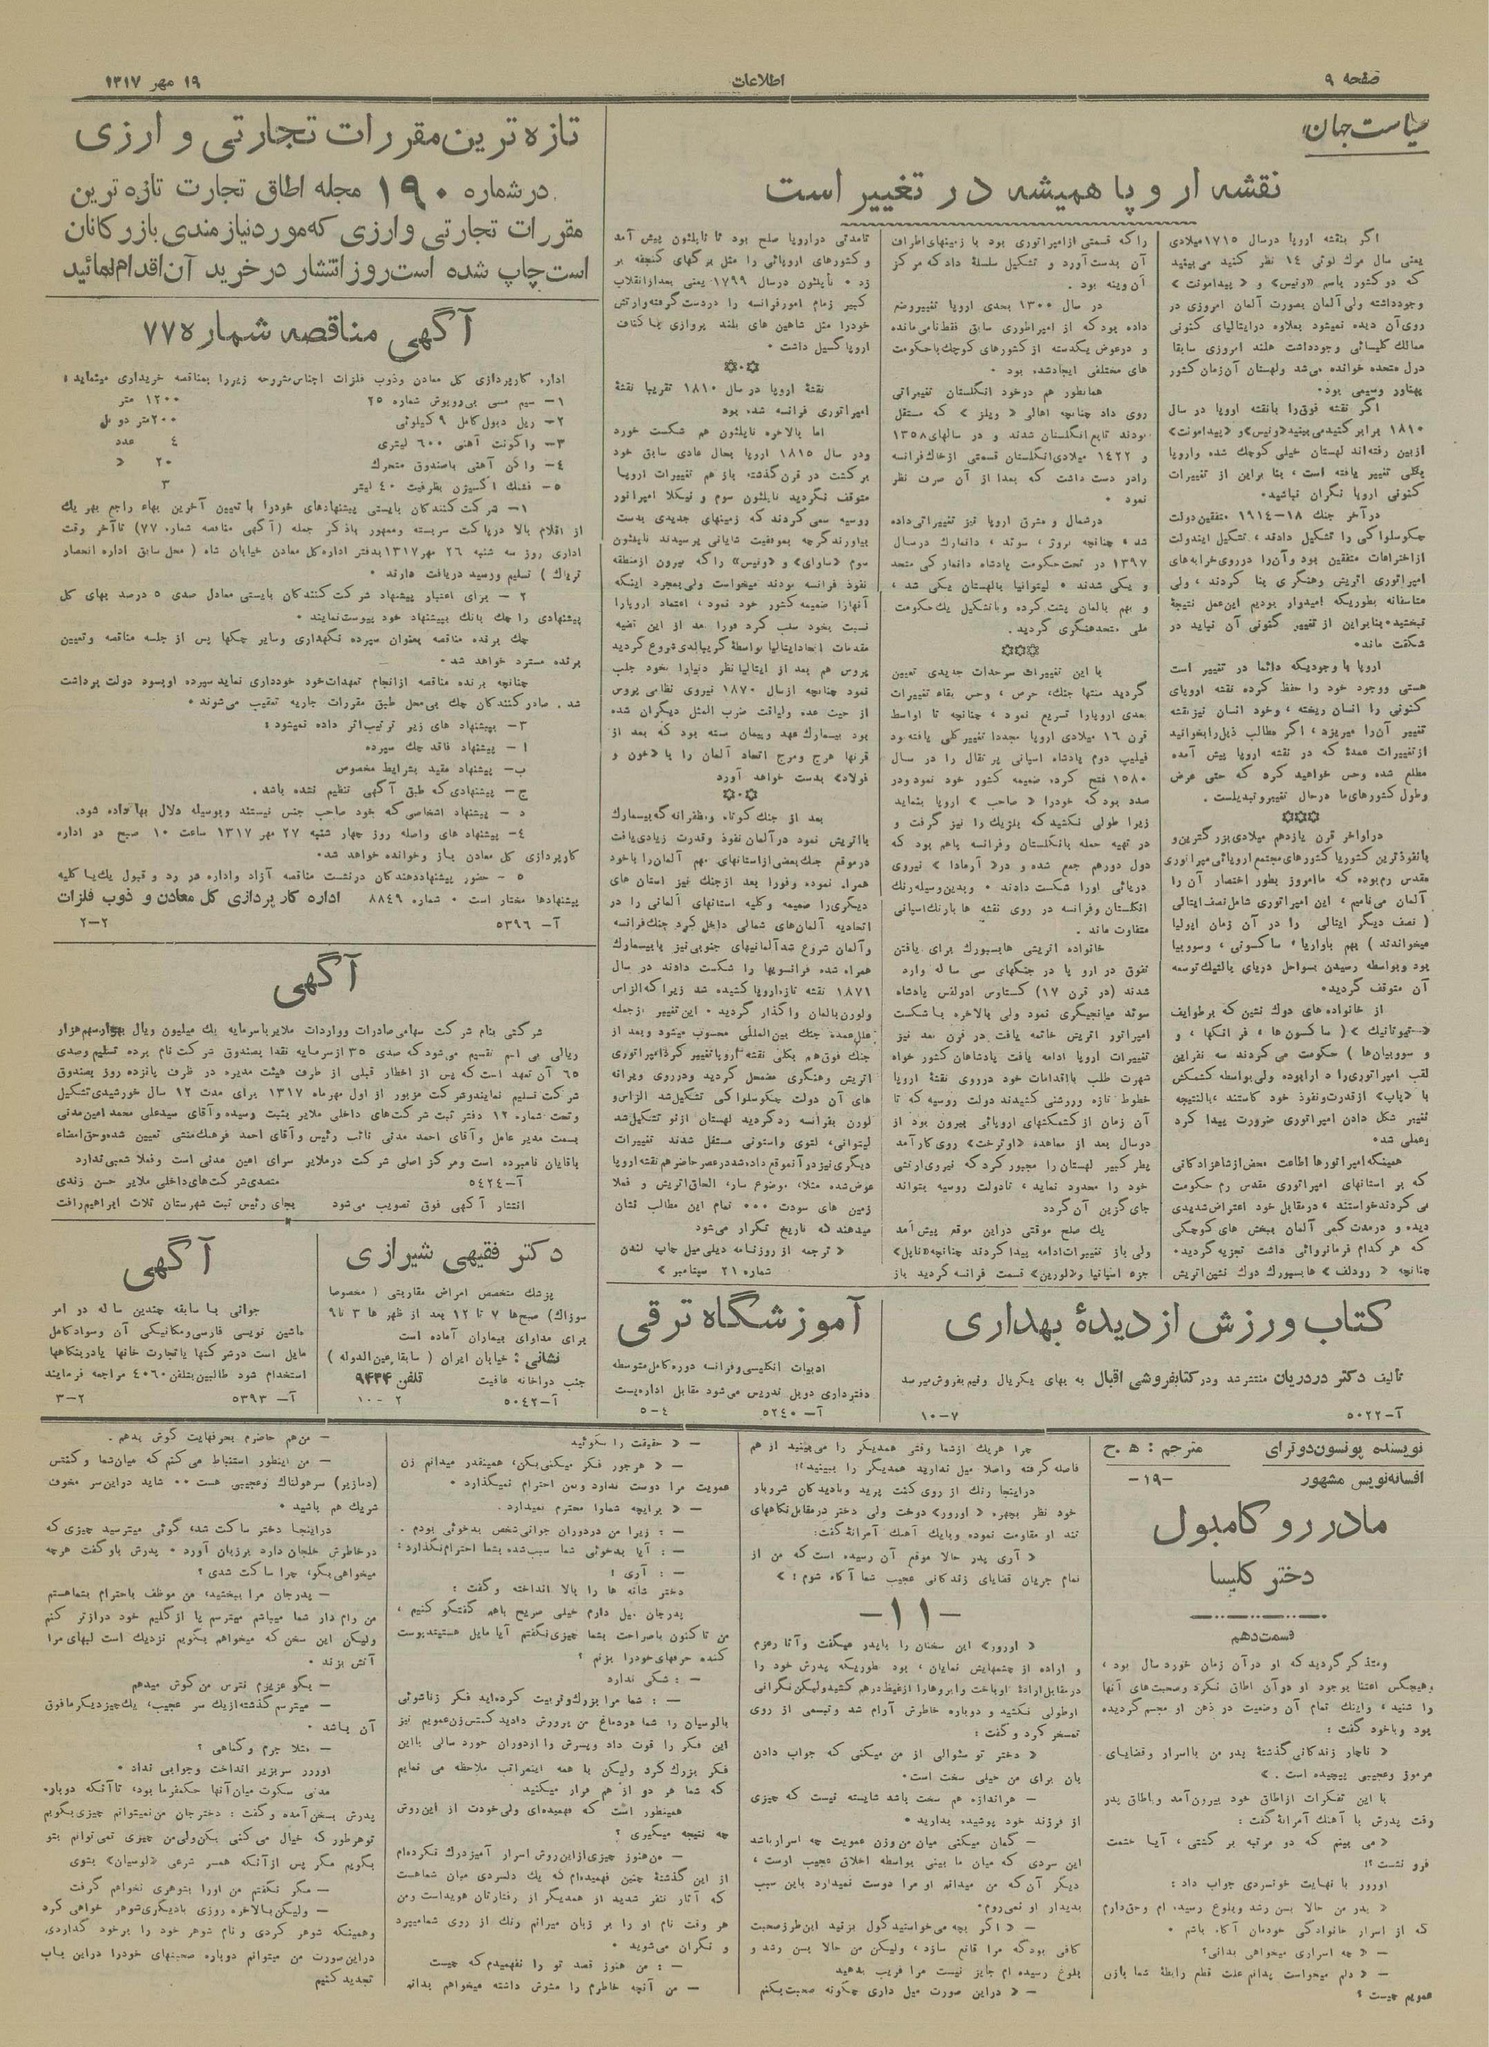 صفحه ۹
اطلاعات
۱۹ مهر ۱۳۱۷
سیاست جهان
نقشه اروپا همیشه در تغییر است
اگر بنقشه اروپا درسال ۱۷۱۵ میلادی
یعنی سال مرگ لوئی ۱۴ نظر کنید می‌بینید
که دو کشور باسم «ونیس» و «پیدامونت»
وجودداشته ولی آلمان بصورت آلمان امروزی در
روی آن دیده نمیشود بعلاوه درایتالیای کنونی
ممالک کلیسائی وجودداشت هلند امروزی سابقا
دول متحده خوانده می‌شد ولهستان آن زمان کشور
پهناور وسیعی بود.
اگر نقشه فوق را بانقشه اروپا در سال
۱۸۱۰ برابر کنید می‌بینید «ونیس» و «پیدامونت»
ازبین رفته‌اند لهستان خیلی کوچک شده واروپا
بکلی تغییر یافته است، بنا براین از تغییرات
کنونی اروپا نگران نباشید.
درآخر جنگ ۱۸-۱۹۱۴ متفقین دولت
چکوسلواکی را تشکیل دادند، تشکیل ایندولت
ازاختراعات متفقین بود وآن را درروی خرابه‌های
امپراتوری اتریش وهنگری بنا کردند، ولی
متاسفانه بطوریکه امیدوار بودیم این عمل نتیجهٔ
نبخشید. بنابراین از تغییر کنونی آن نباید در
شگفت ماند.
اروپا با وجودیکه دائما در تغییر است
هستی ووجود خود را حفظ کرده نقشه اروپای
کنونی را انسان ریخته، وخود انسان نیز نقشه
تغییر آن را میریزد، اگر مطالب ذیل را بخوانید
ازتغییرات عمدهٔ که در نقشه اروپا پیش آمده
مطلع شده وحس خواهید کرد که حتی عرض
وطول کشورهای ما درحال تغییر و تبدیلست.
دراواخر قرن یازدهم میلادی بزرگترین و
بانفوذترین کشور یا کشورهای مجتمع اروپائی امپراتوری
مقدس رم بوده که ما امروز بطور اختصار آن را
آلمان می‌نامیم، این امپراتوری شامل نصف ایتالی
( نصف دیگر ایتالی را در آن زمان اپولیا
میخواندند ) بهم باواریا، ساکسونی، وسووبیا
بود وبواسطه رسیدن بسواحل دریای بالتیک توسعه
آن متوقف گردید.
از خانواده های دوک نشین که برطوایف
«تیوتانیک» ( ساکسون ها، فرانکها، و
و سووبیان‌ها ) حکومت می‌کردند سه نفر این
لقب امپراتوری را دارابوده ولی بواسطه کشمکش
با «پاپ» ازقدرت ونفوذ خود کاستند، بالنتیجه
تغییر شکل دادن امپراتوری ضرورت پیدا کرد
وعملی شد.
همینکه امپراتورها اطاعت محض از شاهزادگانی
که بر استانهای امپراتوری مقدس رم حکومت
می‌کردند خواستند، درمقابل خود اعتراض شدیدی
دیده و درمدت کمی آلمان ببخش های کوچکی
که هرکدام فرمانروائی داشت تجزیه گردید.
چنانچه «رودلف» هابسبورگ دوک نشین اتریش
را که قسمتی از امپراتوری بود با زمینهای اطراف
آن بدست آورد و تشکیل سلسلهٔ داد که مرکز
آن وینه بود.
در سال ۱۳۰۰ بعدی اروپا تغییر وضع
داده بود که از امپراطوری سابق فقط نامی مانده
و درعوض یکدسته از کشورهای کوچک باحکومت
های مختلفی ایجاد شده بود.
همانطور هم درخود انگلستان تغییراتی
روی داد چنانچه اهالی «ویلز» که مستقل
بودند تابع انگلستان شدند و در سالهای ۱۳۵۸
و ۱۴۲۲ میلادی انگلستان قسمتی از خاک فرانسه
رادر دست داشت که بعدا از آن صرف نظر
نمود.
درشمال و مشرق اروپا نیز تغییراتی داده
شد، چنانچه نروژ، سوئد، دانمارک درسال
۱۳۹۷ در تحت حکومت پادشاه دانمارکی متحد
و یکی شدند. لیتوانیا بالهستان یکی شد،
و بهم بالمان پشت کرده و باتشکیل یک حکومت
ملی متحد هنگری گردید.
با این تغییرات سرحدات جدیدی تعیین
گردید منتها جنگ، حرص، وحس بقاء تغییرات
بعدی اروپا را تسریع نمود، چنانچه تا اواسط
قرن ۱۶ میلادی اروپا مجددا تغییر کلی یافته بود
فیلیپ دوم پادشاه اسپانی پرتقال را در سال
۱۵۸۰ فتح کرده، ضمیمه کشور خود نمود ودر
صدد بود که خودرا «صاحب» اروپا بنماید
زیرا طولی نکشید که بلژیک را نیز گرفت و
در تهیه حمله بانگلستان وفرانسه باهم بود که
دول دورهم جمع شده و در «آرمادا» نیروی
دریائی اورا شکست دادند. وبدین وسیله رنگ
انگلستان وفرانسه در روی نقشه ها بارنگ اسپانی
متفاوت ماند.
خانواده اتریشی هابسبورگ برای یافتن
تفوق در اروپا در جنگهای سی ساله وارد
شدند (در قرن ۱۷) گستاوس ادولفس پادشاه
سوئد میانجیگری نمود ولی بالاخره باشکست
امپراتور اتریش خاتمه یافت در قرن بعد نیز
تغییرات اروپا ادامه یافت پادشاهان کشور خواه
شهرت طلب بااقدامات خود درروی نقشهٔ اروپا
خطوط تازه وروشنی کشیدند دولت روسیه که تا
آن زمان از کشمکشهای اروپائی بیرون بود از
دوسال بعد از معاهده «اوترخت» روی کار آمد
پطر کبیر لهستان را مجبور کرد که نیروی ارتشی
خود را محدود نماید، تادولت روسیه بتواند
جای گزین آن گردد
یک صلح موقتی دراین موقع پیش آمد
ولی باز تغییرات ادامه پیدا کردند چنانچه «ناپل»
جزء اسپانیا و «لورین» قسمت فرانسه گردید باز
تامدتی دراروپا صلح بود تا ناپلئون پیش آمد
و کشورهای اروپائی را مثل برگهای گنجفه بر
زد. ناپلئون درسال ۱۷۹۹ یعنی بعد ازانقلاب
کبیر زمام امور فرانسه را دردست گرفته وارتش
خودرا مثل شاهین های بلند پروازی باکناف
اروپا گسیل داشت.
نقشهٔ اروپا در سال ۱۸۱۰ تقریبا نقشهٔ
امپراتوری فرانسه شده بود
اما بالاخره ناپلئون هم شکست خورد
ودر سال ۱۸۱۵ اروپا بحال عادی سابق خود
برگشت در قرن گذشته، باز هم تغییرات اروپا
متوقف نگردید ناپلئون سوم و نیکلا امپراتور
روسیه سعی کردند که زمینهای جدیدی بدست
بیاورند گرچه بموفقیت شایانی نرسیدند ناپلئون
سوم «ساوای» و «ونیس» را که بیرون ازمنطقه
نفوذ فرانسه بودند میخواست ولی بمجرد اینکه
آنهارا ضمیمه کشور خود نمود، اعتماد اروپا را
نسبت بخود سلب کرد فورا بعد از این قضیه
مقدمات اتحاد ایتالیا بواسطهٔ گریبالدی شروع گردید
پروس هم بعد از ایتالیا نظر دنیارا بخود جلب
نمود چنانچه ازسال ۱۸۷۰ نیروی نظامی پروس
از حیث عده ولیاقت ضرب المثل دیگران شده
بود بیسمارک عهد وپیمان بسته بود که بعد از
قرنها هرج ومرج اتحاد آلمان را با «خون و
فولاد» بدست خواهد آورد
بعد از جنگ کوتاه ومظفرانه که بیسمارک
بااتریش نمود درآلمان نفوذ وقدرت زیادی یافت
درموقع جنگ بعضی از استانهای مهم آلمان را باخود
همراه نموده وفورا بعد ازجنگ نیز استان های
دیگری را ضمیمه وکلیه استانهای آلمانی را در
اتحادیه آلمان های شمالی داخل کرد جنگ فرانسه
وآلمان شروع شد آلمانیهای جنوبی نیز با بیسمارک
همراه شده فرانسویها را شکست دادند در سال
۱۸۷۱ نقشه تازه اروپا کشیده شد زیرا که الزاس
ولورن بالمان واگذار گردید. این تغییر ازجمله
علل عمده جنگ بین المللی محسوب میشود وبعد از
جنگ فوق هم بکلی نقشه اروپا تغییر کرد امپراتوری
اتریش وهنگری مضمحل گردید ودرروی ویرانه
های آن دولت چکوسلواکی تشکیل شد الزاس و
لورن بفرانسه رد گردید لهستان ازنو تشکیل شد
لیتوانی، لتوی واستونی مستقل شدند تغییرات
دیگری نیز در آن موقع داده شد درعصر حاضر هم نقشه اروپا
عوض شده مثلا، موضوع سار، الحاق اتریش و فعلا
زمین های سودت ... تمام این مطالب نشان
میدهند که تاریخ تکرار می‌شود
« ترجمه از روزنامه دیلی میل چاپ لندن
شماره ۲۱ سپتامبر »
تازه ترین مقررات تجارتی و ارزی
درشماره ۱۹۰ مجله اطاق تجارت تازه ترین
مقررات تجارتی وارزی که مورد نیازمندی بازرگانان
است چاپ شده است روز انتشار درخرید آن اقدام نمائید
آگهی مناقصه شماره ۷۷
اداره کارپردازی کل معادن وذوب فلزات اجناس مشروحه زیررا بمناقصه خریداری مینماید:
۱- سیم مسی بی روپوش شماره ۲۵ ۱۲۰۰ متر
۲- ریل دبول کامل ۹ کیلوئی ۲۰۰متر دوبل
۳- واگونت آهنی ۶۰۰ لیتری ۴ عدد
۴- واگن آهنی باصندوق متحرک ۲۰ «
۵- فشنگ اکسیژن بظرفیت ۴۰ لیتر ۳
۱- شرکت کنندگان بایستی پیشنهادهای خودرا با تعیین آخرین بهاء راجع بهر یک
از اقلام بالا درپاکت سربسته وممهور باذکر جمله (آگهی مناقصه شماره ۷۷) تاآخر وقت
اداری روز سه شنبه ۲۶ مهر ۱۳۱۷ بدفتر اداره کل معادن خیابان شاه ( محل سابق اداره انحصار
تریاک ) تسلیم ورسید دریافت دارند.
۲ - برای اعتبار پیشنهاد شرکت کنندگان بایستی معادل صدی ۵ درصد بهای کل
پیشنهادی را چک بانک بپیشنهاد خود پیوست نمایند.
چک برنده مناقصه بعنوان سپرده نگهداری وسایر چکها پس از جلسه مناقصه وتعیین
برنده مسترد خواهد شد.
چنانچه برنده مناقصه ازانجام تعهدات خود خودداری نماید سپرده اوبسود دولت برداشت
شد. صادرکنندگان چک بی محل طبق مقررات جاریه تعقیب می‌شوند.
۳- بپیشنهاد های زیر ترتیب اثر داده نمیشود:
ا - پیشنهاد فاقد چک سپرده
ب- پیشنهاد مقید بشرایط مخصوص
ج- پیشنهادی که طبق آگهی تنظیم نشده باشد.
د - پیشنهاد اشخاصی که خود صاحب جنس نیستند وبوسیله دلال بها داده شود.
۴- پیشنهاد های واصله روز چهار شنبه ۲۷ مهر ۱۳۱۷ ساعت ۱۰ صبح در اداره
کارپردازی کل معادن باز وخوانده خواهد شد.
۵ - حضور پیشنهاددهندگان درنشست مناقصه آزاد واداره در رد و قبول یک یا کلیه
پیشنهادها مختار است. شماره ۸۸۴۹ اداره کارپردازی کل معادن و ذوب فلزات
آ- ۵۳۹۶ ۲-۲
آگهی
شرکتی بنام شرکت سهامی صادرات وواردات ملایر باسرمایه یک میلیون وریال بچهار سهم هزار
ریالی بی اسم تقسیم می‌شود که صدی ۳۵ ازسرمایه نقدا بصندوق شرکت نام برده تسلیم وصدی
۶۵ آن تعهد است که پس از اخطار قبلی از طرف هیئت مدیره در ظرف پانزده روز بصندوق
شرکت تسلیم نمایند شرکت مزبور از اول مهرماه ۱۳۱۷ برای مدت ۱۲ سال خورشیدی تشکیل
وتحت شماره ۱۲ دفتر ثبت شرکت‌های داخلی ملایر بثبت رسیده وآقای سیدعلی محمد امین مدنی
بسمت مدیر عامل وآقای احمد مدنی نائب رئیس وآقای احمد فرهنگ منشی تعیین شده وحق امضاء
باقایان نامبرده است ومرکز اصلی شرکت درملایر سرای امین مدنی است وفعلا شعبی ندارد
آ-۵۴۲۴ متصدی شرکت‌های داخلی ملایر حسن زندی
انتشار آگهی فوق تصویب می‌شود بجای رئیس ثبت شهرستان ثلاث ابراهیم رافت
دکتر فقیهی شیرازی
پزشک متخصص امراض مقاربتی ( مخصوصا
سوزاک) صبح‌ها ۷ تا ۱۲ بعد از ظهر ها ۳ تا ۹
برای مداوای بیماران آماده است
نشانی: خیابان ایران ( سابقا عین الدوله )
جنب دواخانه عافیت تلفن ۹۴۳۴
آ-۵۰۴۲ ۲ -۱۰
آگهی
جوانی با سابقه چندین ساله در امر
ماشین نویسی فارسی ومکانیکی آن وسواد کامل
مایل است درشرکتها یا تجارت خانها یا دربنگاهها
استخدام شود طالبین بتلفن ۴۰۶۰ مراجعه فرمایند
آ- ۵۳۹۳ ۲-۳
کتاب ورزش از دیدهٔ بهداری
تألیف دکتر دردریان منتشر شد ودر کتابفروشی اقبال به بهای یکریال ونیم بفروش میرسد
آ-۵۰۲۲ ۷-۱۰
آموزشگاه ترقی
ادبیات انگلیسی وفرانسه دوره کامل متوسطه
دفترداری دوبل تدریس می‌شود مقابل اداره پست
آ- ۵۲۴۰ ۴-۵
نویسنده پونسون دوترای
مترجم: ه.ح
افسانه نویس مشهور
-۱۹-
مادر روکامبول
دختر کلیسا
قسمت دهم
ومتذکر گردید که او درآن زمان خورد سال بود،
وهیچکس اعتنا بوجود او درآن اطاق نکرد وصحبت‌های آنها
را شنید، واینک تمام آن وضعیت در ذهن او مجسم گردیده
بود وباخود گفت:
« ناچار زندگانی گذشتهٔ پدر من بااسرار وقضایای
مرموز وعجیبی پیچیده است. »
با این تفکرات ازاطاق خود بیرون آمد وباطاق پدر
رفت پدرش با آهنگ آمرانهٔ گفت:
« می بینم که دو مرتبه برگشتی، آیا خشمت
فرو نشست؟!
اورور با نهایت خونسردی جواب داد:
« پدر من حالا بسن رشد وبلوغ رسیده ام وحق دارم
که از اسرار خانوادگی خودمان آگاه باشم.
- « چه اسراری میخواهی بدانی؟
- « دلم میخواست بدانم علت قطع رابطهٔ شما بازن
عمویم چیست؟
چرا هریک ازشما وقتی همدیگر را می‌بینید از هم
فاصله گرفته واصلا میل ندارید همدیگر را ببینید؟!
دراینجا رنگ از روی کنت پرید وبادیدگان شرربار
خود نظر بچهره «اورور» دوخت ولی دختر درمقابل نگاههای
تند او مقاومت نموده وبایک آهنگ آمرانهٔ گفت:
« آری پدر حالا موقع آن رسیده است که من از
تمام جریان قضایای زندگانی عجیب شما آگاه شوم! »
-۱۱-
« اورور» این سخنان را بایدر میگفت وآثار عزم
و اراده از چشمهایش نمایان، بود طوریکه پدرش خود را
درمقابل ارادهٔ اوباخت وابروهارا ازغیظ درهم کشید ولیکن نگرانی
اوطولی نکشید و دوباره خاطرش آرام شد وتبسمی از روی
تمسخر کرد و گفت:
« دختر تو سئوالی از من میکنی که جواب دادن
بان برای من خیلی سخت است.
- هراندازه هم سخت باشد شایسته نیست که چیزی
از فرزند خود پوشیده بدارید.
- گمان میکنی میان من وزن عمویت چه اسراریاشد
این سردی که میان ما بینی بواسطه اخلاق عجیب اوست،
دیگر آن که من میدانم او مرا دوست نمیدارد باین سبب
بدیدار او نمی‌روم.
- « اگر بچه می‌خواستید گول بزنید این طرز صحبت
کافی بود که مرا قانع سازد، ولیکن من حالا بسن رشد و
بلوغ رسیده ام جایز نیست مرا فریب بدهید
- « دراین صورت میل داری چگونه صحبت بکنم
- « حقیقت را بگوئید
- « هرجور فکر میکنی بکن، همینقدر میدانم زن
عمویت مرا دوست ندارد وبمن احترام نمیگذارد.
- « برایچه شمارا محترم نمیدارد.
- : زیرا من دردوران جوانی شخص بدخوئی بودم.
- : آیا بدخوئی شما سبب شده بشما احترام نگذارد:
- : آری!
دختر شانه ها را بالا انداخته و گفت:
پدرجان میل دارم خیلی صریح باهم گفتگو کنیم،
من تاکنون باصراحت بشما چیزی نگفتم آیا مایل هستید پوست
کنده حرفهای خودرا بزنم؟
- : شکی ندارد
- : شما مرا بزرگ وتربیت کرده‌اید فکر زناشوئی
بالوسیان را شما دردماغ من پرورش دادید کنتس زن عمویم نیز
این فکر را قوت داد وپسرش را ازدوران خورد سالی بااین
فکر بزرگ کرد ولیکن با همه اینمراتب ملاحظه می نمایم
که شما هر دو از هم فرار میکنید
همینطور است که فهمیده‌ای ولی خودت از این روش
چه نتیجه میگیری؟
- من هنوز چیزی ازاین روش اسرار آمیز درک نکرده‌ام
از این گذشتهٔ چنین فهمیده‌ام که یک دلسردی میان شماهست
که آثار تنفر شدید از همدیگر از رفتارتان هویداست ومن
هر وقت نام او را بر زبان میرانم رنگ از روی شما میپرد
و نگران می‌شوید.
- : من هنوز قصد تو را نفهمیدم که چیست
- من آنچه خاطرم را مشوش داشته میخواهم بدانم
- من هم حاضرم بحرفهایت گوش بدهم.
- من اینطور استنباط می‌کنم که میان شما و کنتس
(دمازیر) سر هولناک وعجیبی هست .. شاید دراین سر مخوف
شریک هم باشید.
دراینجا دختر ساکت شده، گوئی میترسید چیزی که
درخاطرش خلجان دارد برزبان آورد. پدرش باو گفت هرچه
میخواهی بگو، چرا ساکت شدی؟
- پدرجان مرا ببخشید، من موظف باحترام شماهستم
من وام دار شما میباشم میترسم پا از گلیم خود درازتر کنم
ولیکن این سخن که میخواهم بگویم نزدیک است لبهای مرا
آتش بزند.
- بگو عزیزم نترس من گوش میدهم
- میترسم گذشته ازیک سر عجیب، یک چیز دیگر مافوق
آن باشد.
- مثلا جرم وگناهی؟
اورور سربزیر انداخت وجوابی نداد.
مدتی سکوت میان آنها حکمفرما بود، تاآنکه دوباره
پدرش بسخن آمده و گفت: دخترجان من نمیتوانم چیزی بگویم
توهرطور که خیال می‌کنی بکن ولی من چیزی نمی‌توانم بتو
بگویم مگر پس ازآنکه همسر شرعی «لوسیان» بشوی
- مگر نگفتم من اورا بشوهری نخواهم گرفت
- ولیکن بالاخره روزی بادیگری شوهر خواهی کرد
وهمینکه شوهر کردی و نام شوهر خود را برخود گذاردی،
دراین صورت من میتوانم دوباره صحبتهای خودرا دراین باب
تجدید کنیم